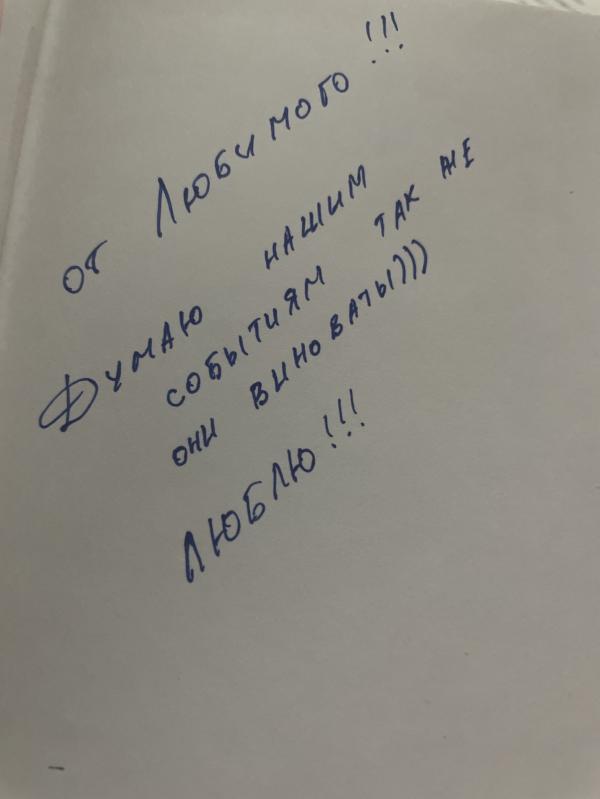 от Любимого!!!
Думаю нашим
событиям так же
они виноваты)))
Люблю!!!